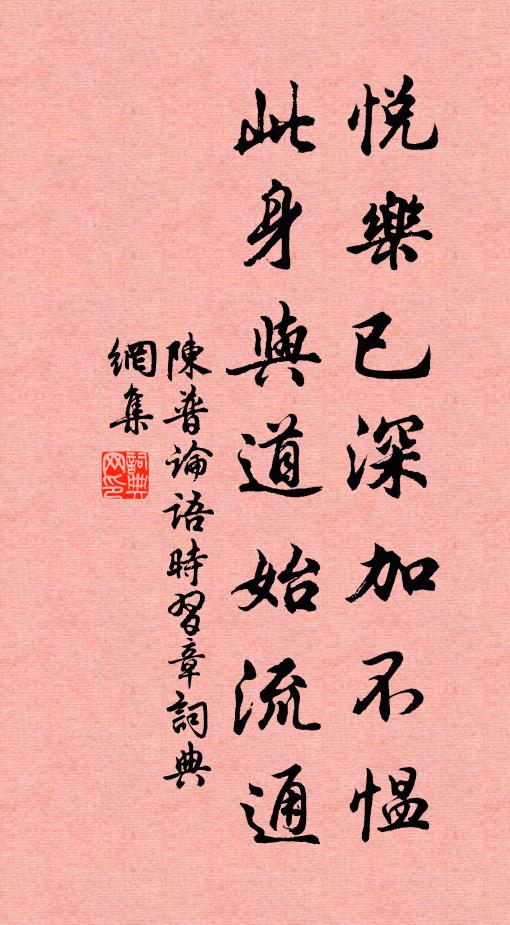 悅樂已深加不愠
此身與道始流通
陳普論語時習章詞典
網集
詞典
网印